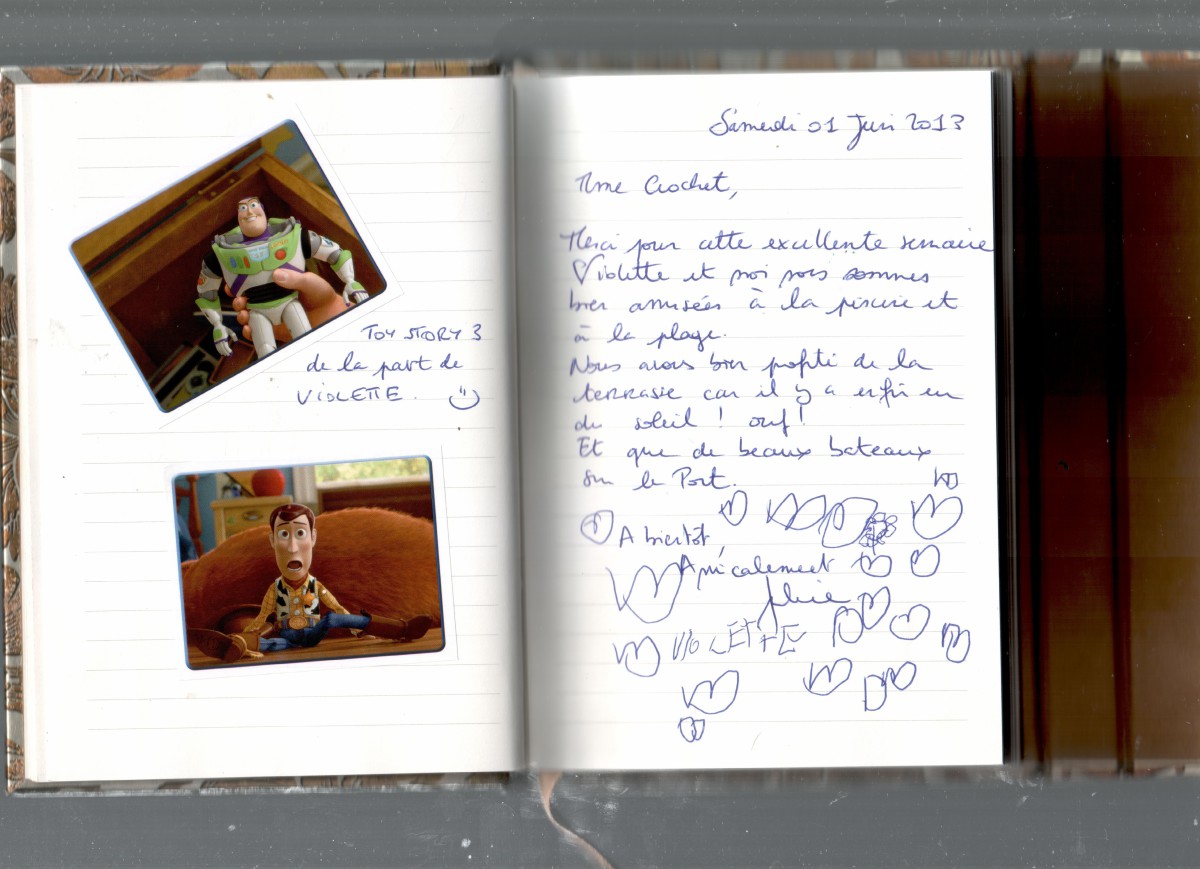 TOY STORY 3
de la part de
VIOLETTE.
Samedi 01 Juin 2013
Mme Crochet,
Merci pour cette excellente semaine
Violette et moi nous sommes
bien amusées à la piscine et
à la plage.
Nous avons bien profité de la
terrasse car il y a enfin eu
du soleil ! ouf !
Et que de beaux bateaux
sur le Port.
A bientôt,
Amicalement
VIOLETTE